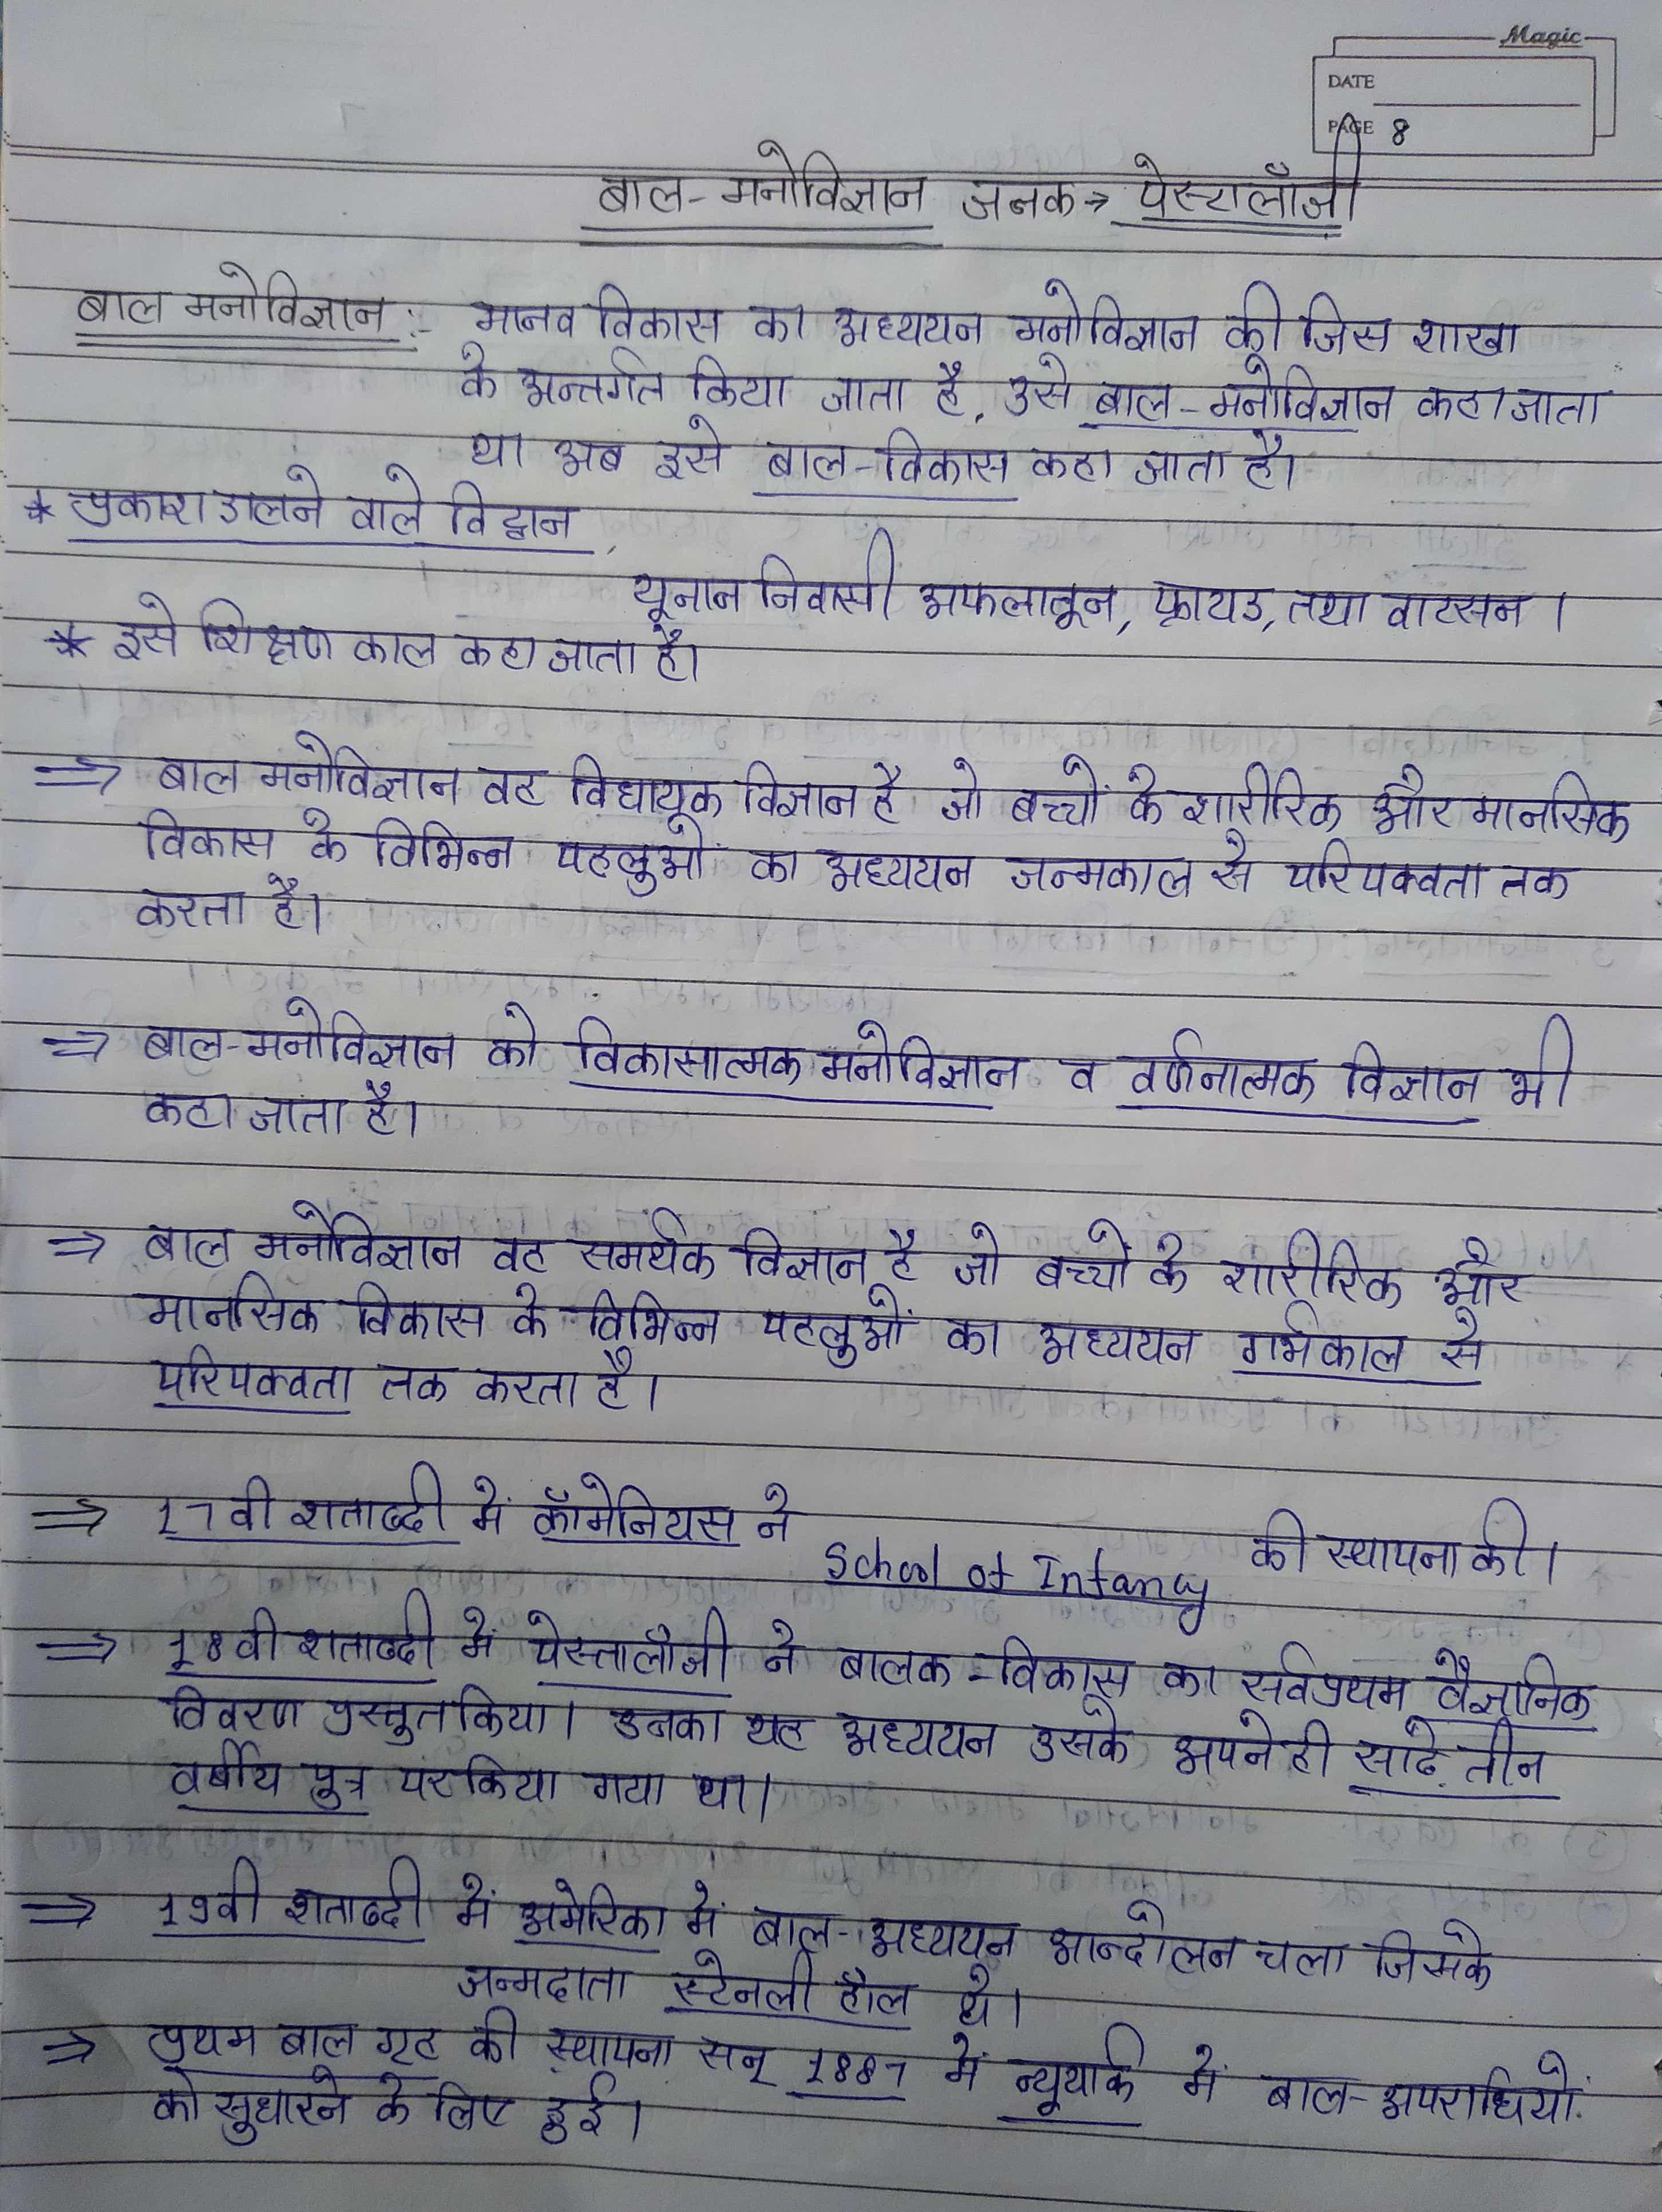 Magic
DATE
PAGE 8
बाल-मनोविज्ञान जनक→ पेस्टालॉजी
बाल मनोविज्ञान :- मानव विकास का अध्ययन मनोविज्ञान की जिस शाखा
के अन्तर्गत किया जाता है, उसे बाल-मनोविज्ञान कहा जाता
था अब इसे बाल-विकास कहा जाता है।
* प्रकाश डालने वाले विद्वान,
यूनान निवासी अफलातून, फ्रायड, तथा वाटसन।
* इसे शिक्षण काल कहा जाता है।
⇒ बाल मनोविज्ञान वह विधायक विज्ञान है जो बच्चों के शारीरिक और मानसिक
विकास के विभिन्न पहलुओं का अध्ययन जन्मकाल से परिपक्वता तक
करता है।
⇒ बाल-मनोविज्ञान को विकासात्मक मनोविज्ञान व वर्णनात्मक विज्ञान भी
कहा जाता है।
⇒ बाल मनोविज्ञान वह समर्थक विज्ञान है जो बच्चों के शारीरिक और
मानसिक विकास के विभिन्न पहलुओं का अध्ययन गर्भकाल से
परिपक्वता तक करता है।
⇒ 17वी शताब्दी में कॉमेनियस ने School of Infancy की स्थापना की।
⇒ 18वी शताब्दी में पेस्तालॉजी ने बालक-विकास का सर्वप्रथम वैज्ञानिक
विवरण प्रस्तुत किया। उनका यह अध्ययन उसके अपने ही साढे तीन
वर्षीय पुत्र पर किया गया था।
⇒ 19वी शताब्दी में अमेरिका में बाल-अध्ययन आन्दोलन चला जिसके
जन्मदाता स्टेनली हॉल थे।
⇒ प्रथम बाल गृह की स्थापना सन् 1887 में न्यूयार्क में बाल-अपराधियों
को सुधारने के लिए हुई।